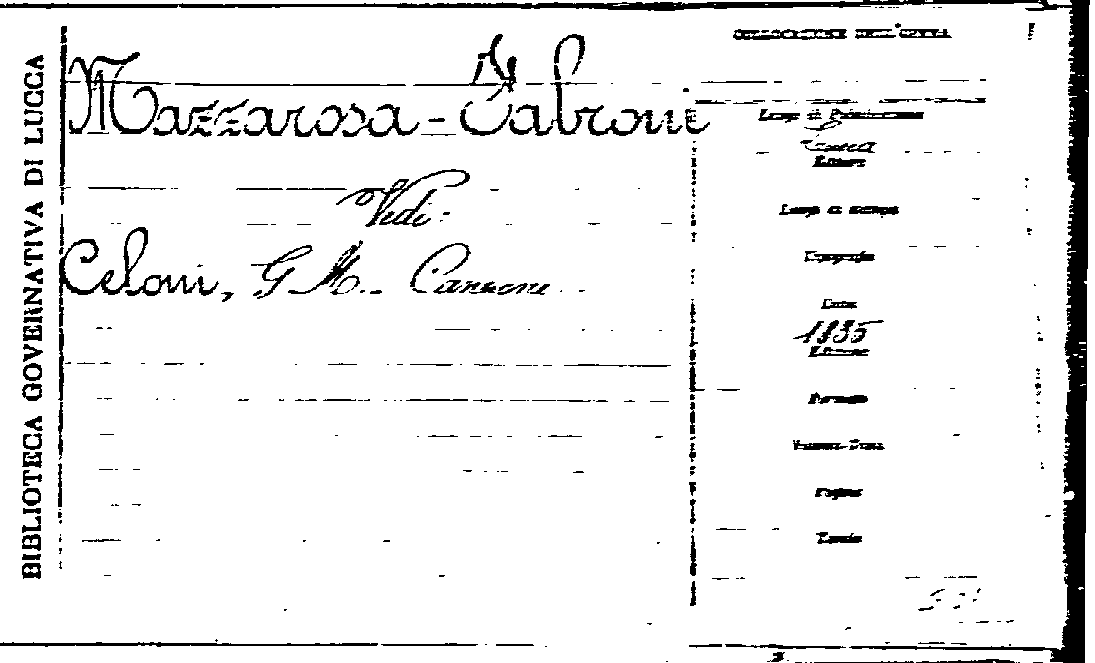 BIBLIOTECA GOVERNATIVA DI LUCCA
Mazzarosa-Fabroni
Vedi:
Celoni, G. M. Canzone
COLLOCAZIONE DELL'OPERA
Luogo di Pubblicazione
Luogo di stampa
Tipografia
Data
1835
Edizione
Formato
Volumi-Tomi
Pagine
Tavole